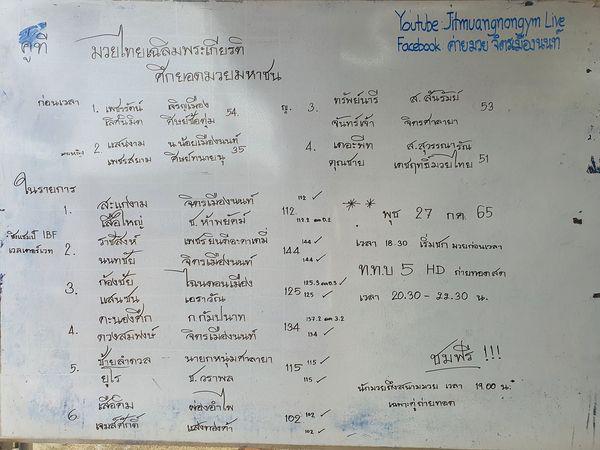 คู่ที่
มวยไทยเฉลิมพระเกียรติ
ศึกยอดมวยมหาชน
Youtube Jitmuangnongym Live
Facebook ค่ายมวย จิตรเมืองนนท์
ก่อนเวลา 1. เพชรรัตน์ เจริญเมือง 54.
ศิษย์ซ้อตุ่ม
2. แสนงาม น.น้อยเมืองนนท์ 35
เพชรสยาม ศิษย์ทนายนุ
ญ. 3. ทรัพย์นารี ส. สันรัมย์ 53
จันทร์เจ้า จิตรศาลายา
4. เดอะพีท ส.สุวรรณารัณ 51
คุณชาย เดชฤทธิ์มวยไทย
ในรายการ
1. สะแกงาม จิตรเมืองนนท์ 112 112 ✓
เสือใหญ่ ช. ห้าพยัคฆ์ 112.2 ลด 0.2
ชิงแชมป์ IBF
เวลเตอร์เวท
2. ราชสีห์ เพชรยินดีอะคาเดมี่ 144 144 ✓
นนทชัย จิตรเมืองนนท์ 144 ✓
3. ก้องชัย ไฉนดอนเมือง 125 125.3 ลด 0.3 ✓
แสนชน เอราวัณ 125 ✓
4. คะนองศึก ก กัมปนาท 134 137.2 ลด 3.2
ดวงสมพงษ์ จิตรเมืองนนท์ 134 ✓
5. ช้ายลำดวล นายกหนุ่มศาลายา 115 115 ✓
ยุไร ช. วราพล 115 ✓
6. เสือคิม ผ่องอำไพ 102 102 ✓
เจมส์ศักดิ์ แสงทองคำ 102 ✓
** พุธ 27 กค 65
เวลา 18.30 เริ่มชก มวยก่อนเวลา
ท.ท.บ 5 HD ถ่ายทอดสด
เวลา 20.30 - 22.30 น.
ชมฟรี !!!
นักมวยถึงสนามมวย เวลา 19.00 น.
เฉพาะคู่ถ่ายทอด